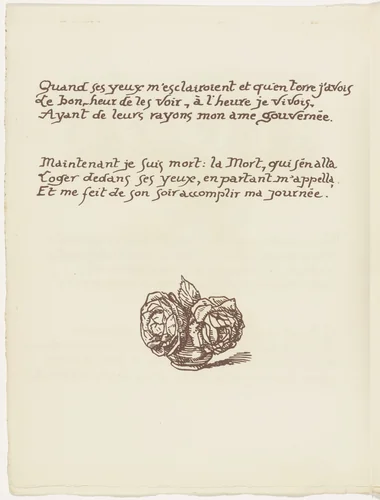 Quand ses yeux m'esclairoient et qu'en terre j'avois
Le bon-heur de les voir, à l'heure je vivois,
Ayant de leurs rayons mon ame gouvernée.
Maintenant je suis mort: la Mort, qui s'en alla
Loger dedans ses yeux, en partant m'appella,
Et me feit de son soir accomplir ma journée.